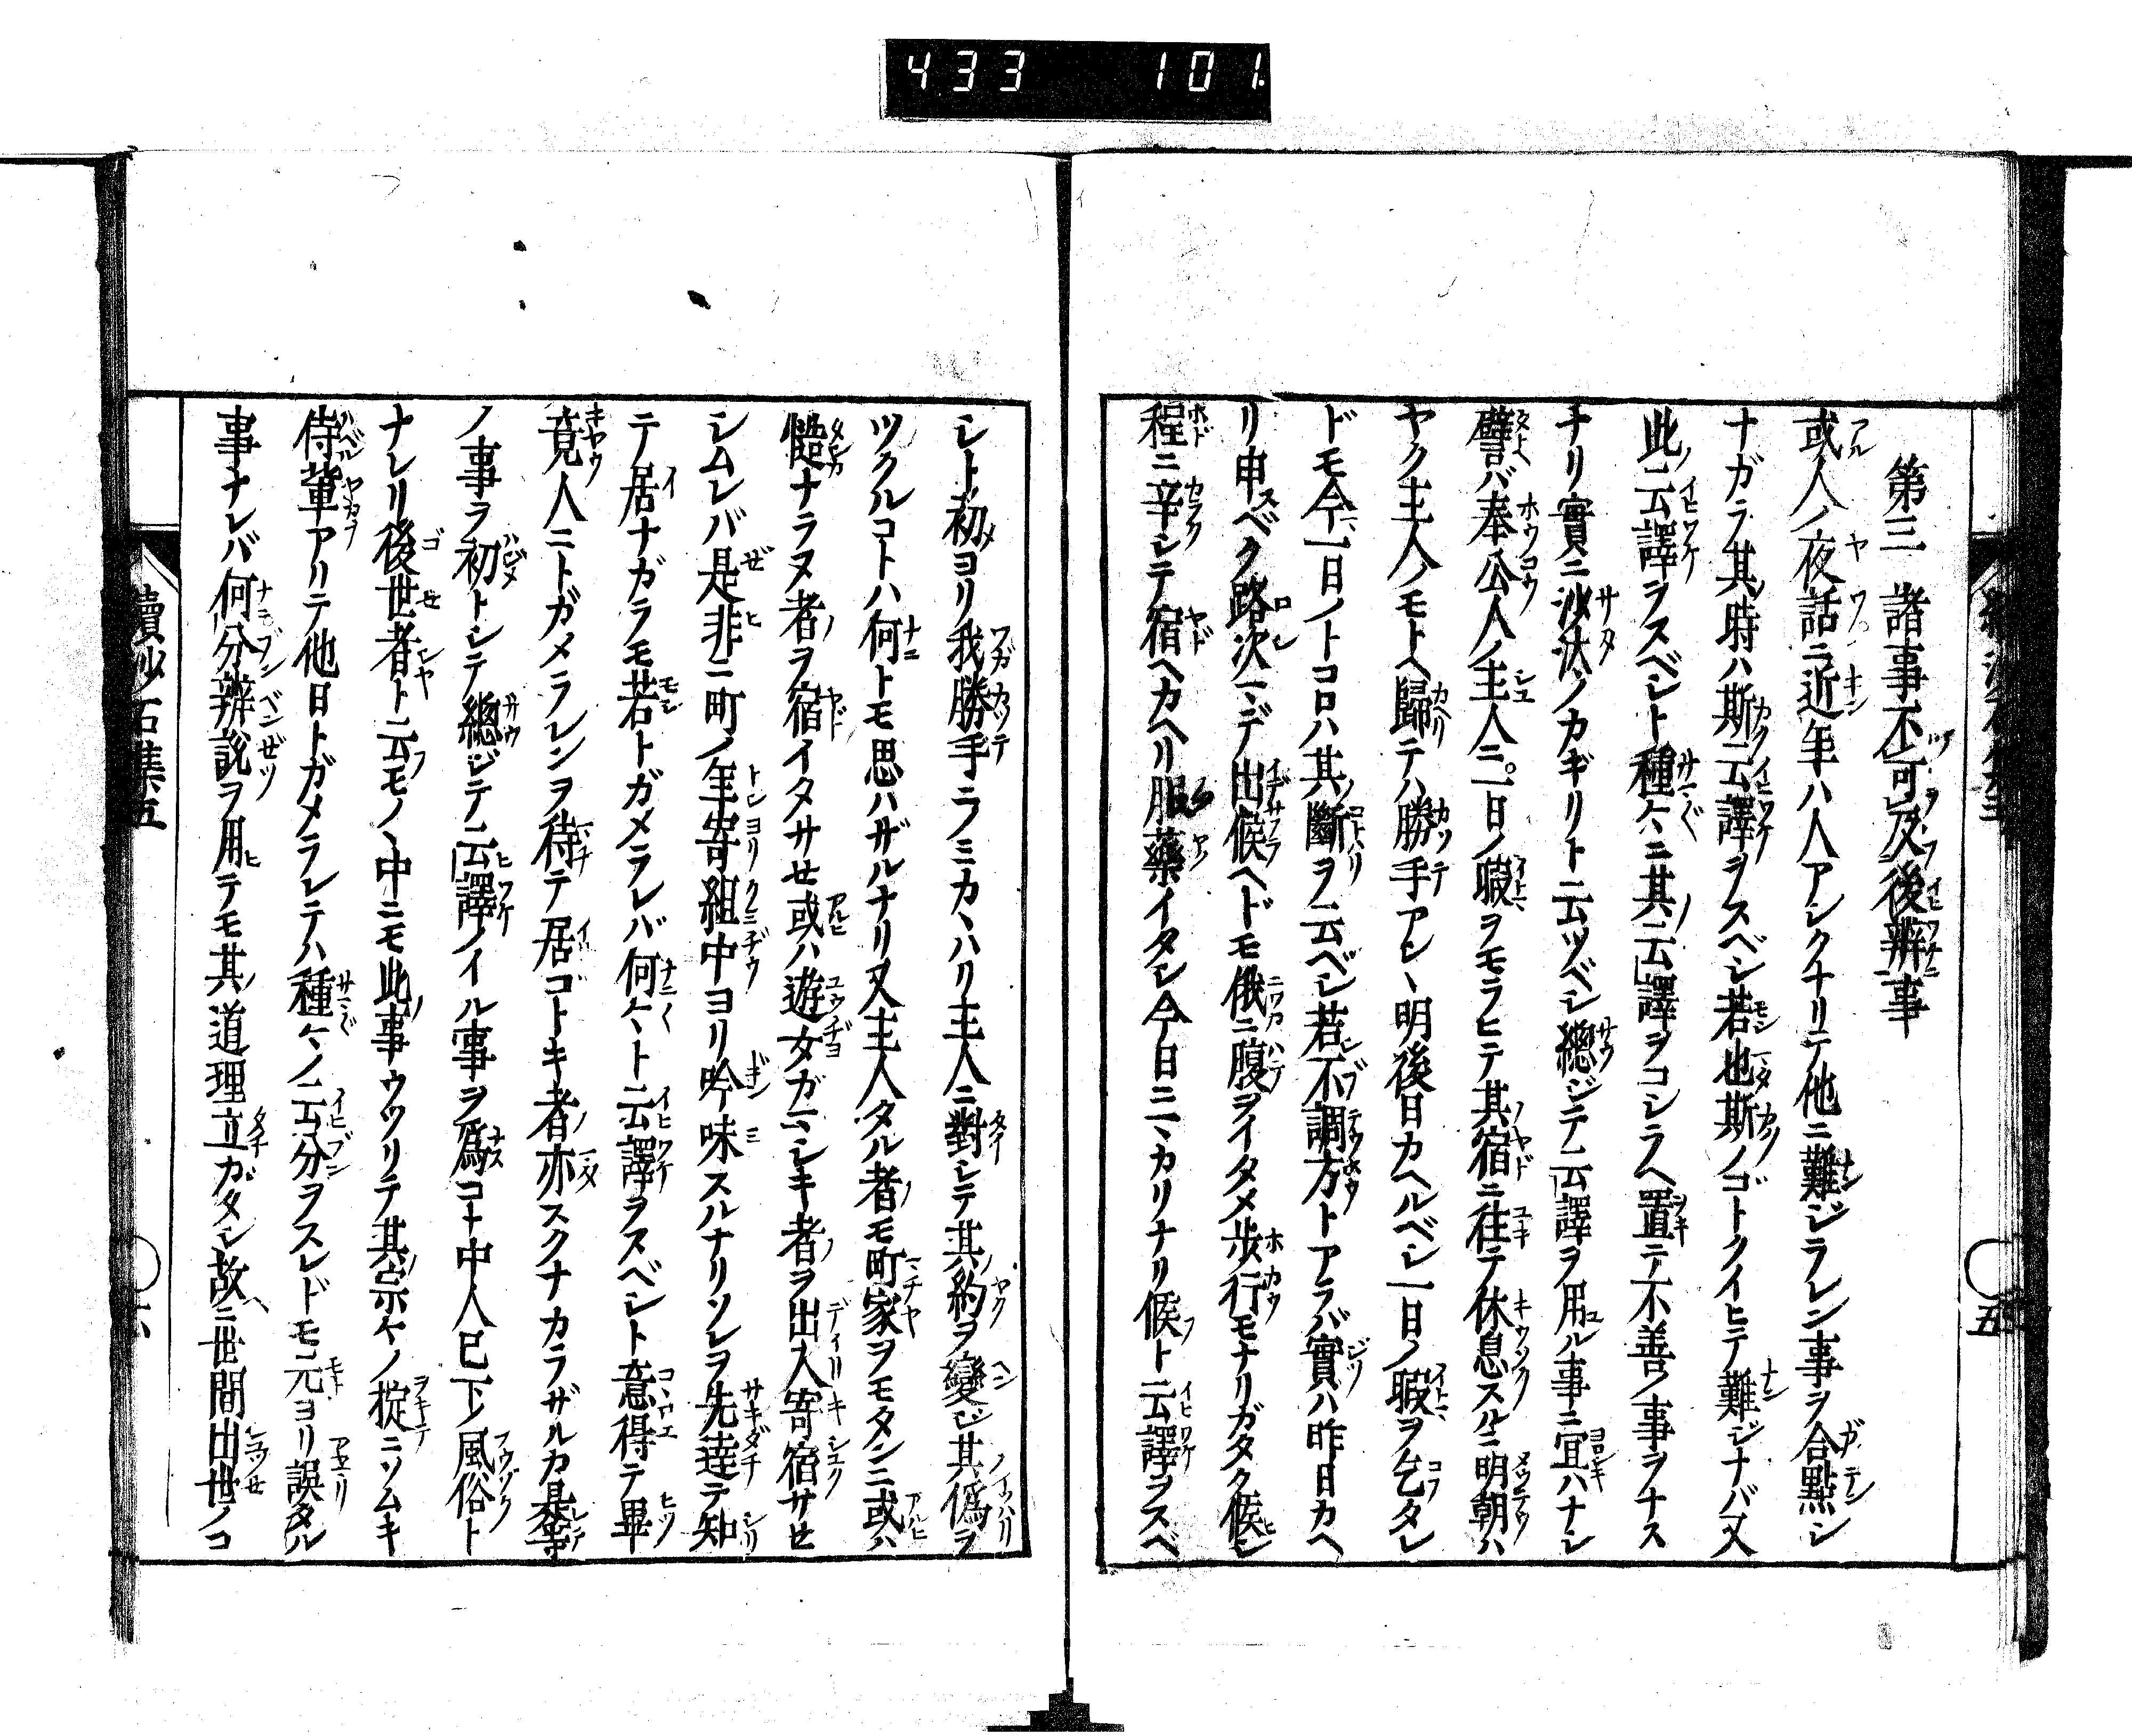 433 101
第三 諸事不可及後辨事
或人ノ夜話ニ近年ハ人アシクナリテ他ニ難ジラレン事ヲ合點シ
ナガラ其時ハ斯云譯ヲスベシ若也斯ノゴトクイヒテ難ジナバ又
此云譯ヲスベシト種々ニ其云譯ヲコシラヘ置テ不善ノ事ヲナス
ナリ實ニ沙汰ノカギリト云ツベシ總ジテ云譯ヲ用ル事ニ宜ハナシ
譬バ奉公人ノ主人ニ一日ノ暇ヲモラヒテ其宿ニ往テ休息スルニ明朝ハ
ヤク主人ノモトヘ歸テハ勝手アシヽ明後日カヘルベシ一日ノ暇ヲ乞タレ
ドモ今一日ノトコロハ其斷ヲ云ベシ若不調方トアラバ實ハ昨日カヘ
リ申ベク路次マデ出候ヘドモ俄ニ腹ヲイタメ歩行モナリガタク候シ
程ニ辛シテ宿ヘカヘリ服藥イタシ今日ニマカリナリ候ト云譯ヲスベ
シト初ヨリ我勝手ヲミカヽハリ主人ニ對シテ其約ヲ變ジ其僞ヲ
ツクルコトハ何トモ思ハザルナリ又主人タル者モ町家ヲモタンニ或ハ
慥ナラヌ者ヲ宿イタサセ或ハ遊女ガマシキ者ヲ出入寄宿サセ
シムレバ是非ニ町ノ年寄組中ヨリ吟味スルナリソレヲ先達テ知
テ居ナガラモ若トガメラレバ何々ト云譯ヲスベシト意得テ畢
竟人ニトガメラレンヲ待テ居ゴトキ者亦スクナカラザルカ是等
ノ事ヲ初トシテ總ジテ云譯ノイル事ヲ爲コト中人已下ノ風俗ト
ナレリ後世者ト云モノヽ中ニモ此事ウツリテ其宗々ノ掟ニソムキ
侍輩アリテ他日トガメラレテハ種々ノ云分ヲスレドモ元ヨリ誤タル
事ナレバ何分辨説ヲ用テモ其道理立ガタシ故ニ世間出世ノコ
續沙石集五
五
六